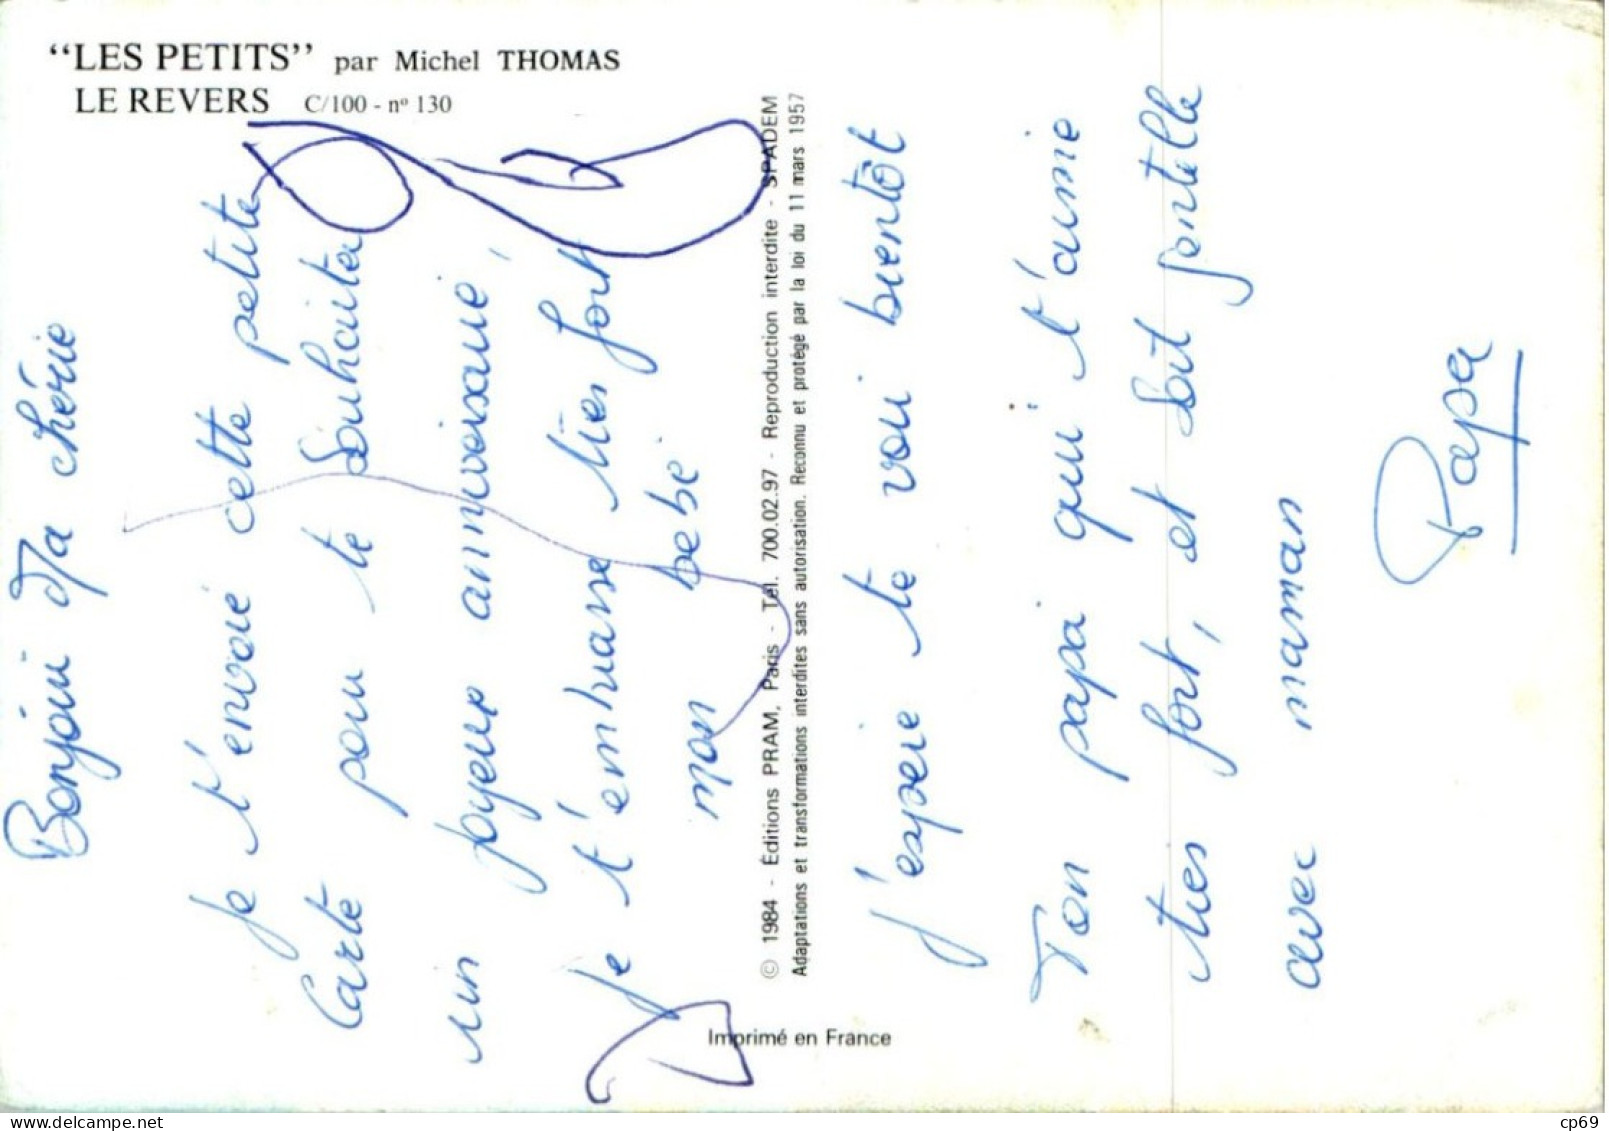 “LES PETITS” par Michel THOMAS
LE REVERS C/100 - nº 130
Bonjour Ma chérie
Je t'envoie cette petite
Carte pour te Souhaiter
un joyeux anniversaire,
Je t'embrasse très fort
mon bebé
© 1984 - Éditions PRAM, Paris - Tél. 700.02.97 - Reproduction interdite - SPADEM
Adaptations et transformations interdites sans autorisation. Reconnu et protégé par la loi du 11 mars 1957
j'espère te voir bientôt
Ton papa qui t'aime
très fort, et soit gentille
avec maman
Papa
Imprimé en France
cp69